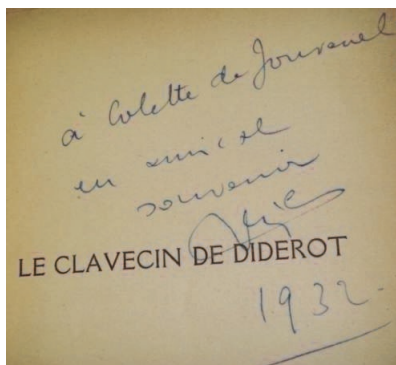 à Colette de Jouvenel
en amical
souvenir
LE CLAVECIN DE DIDEROT
1932.